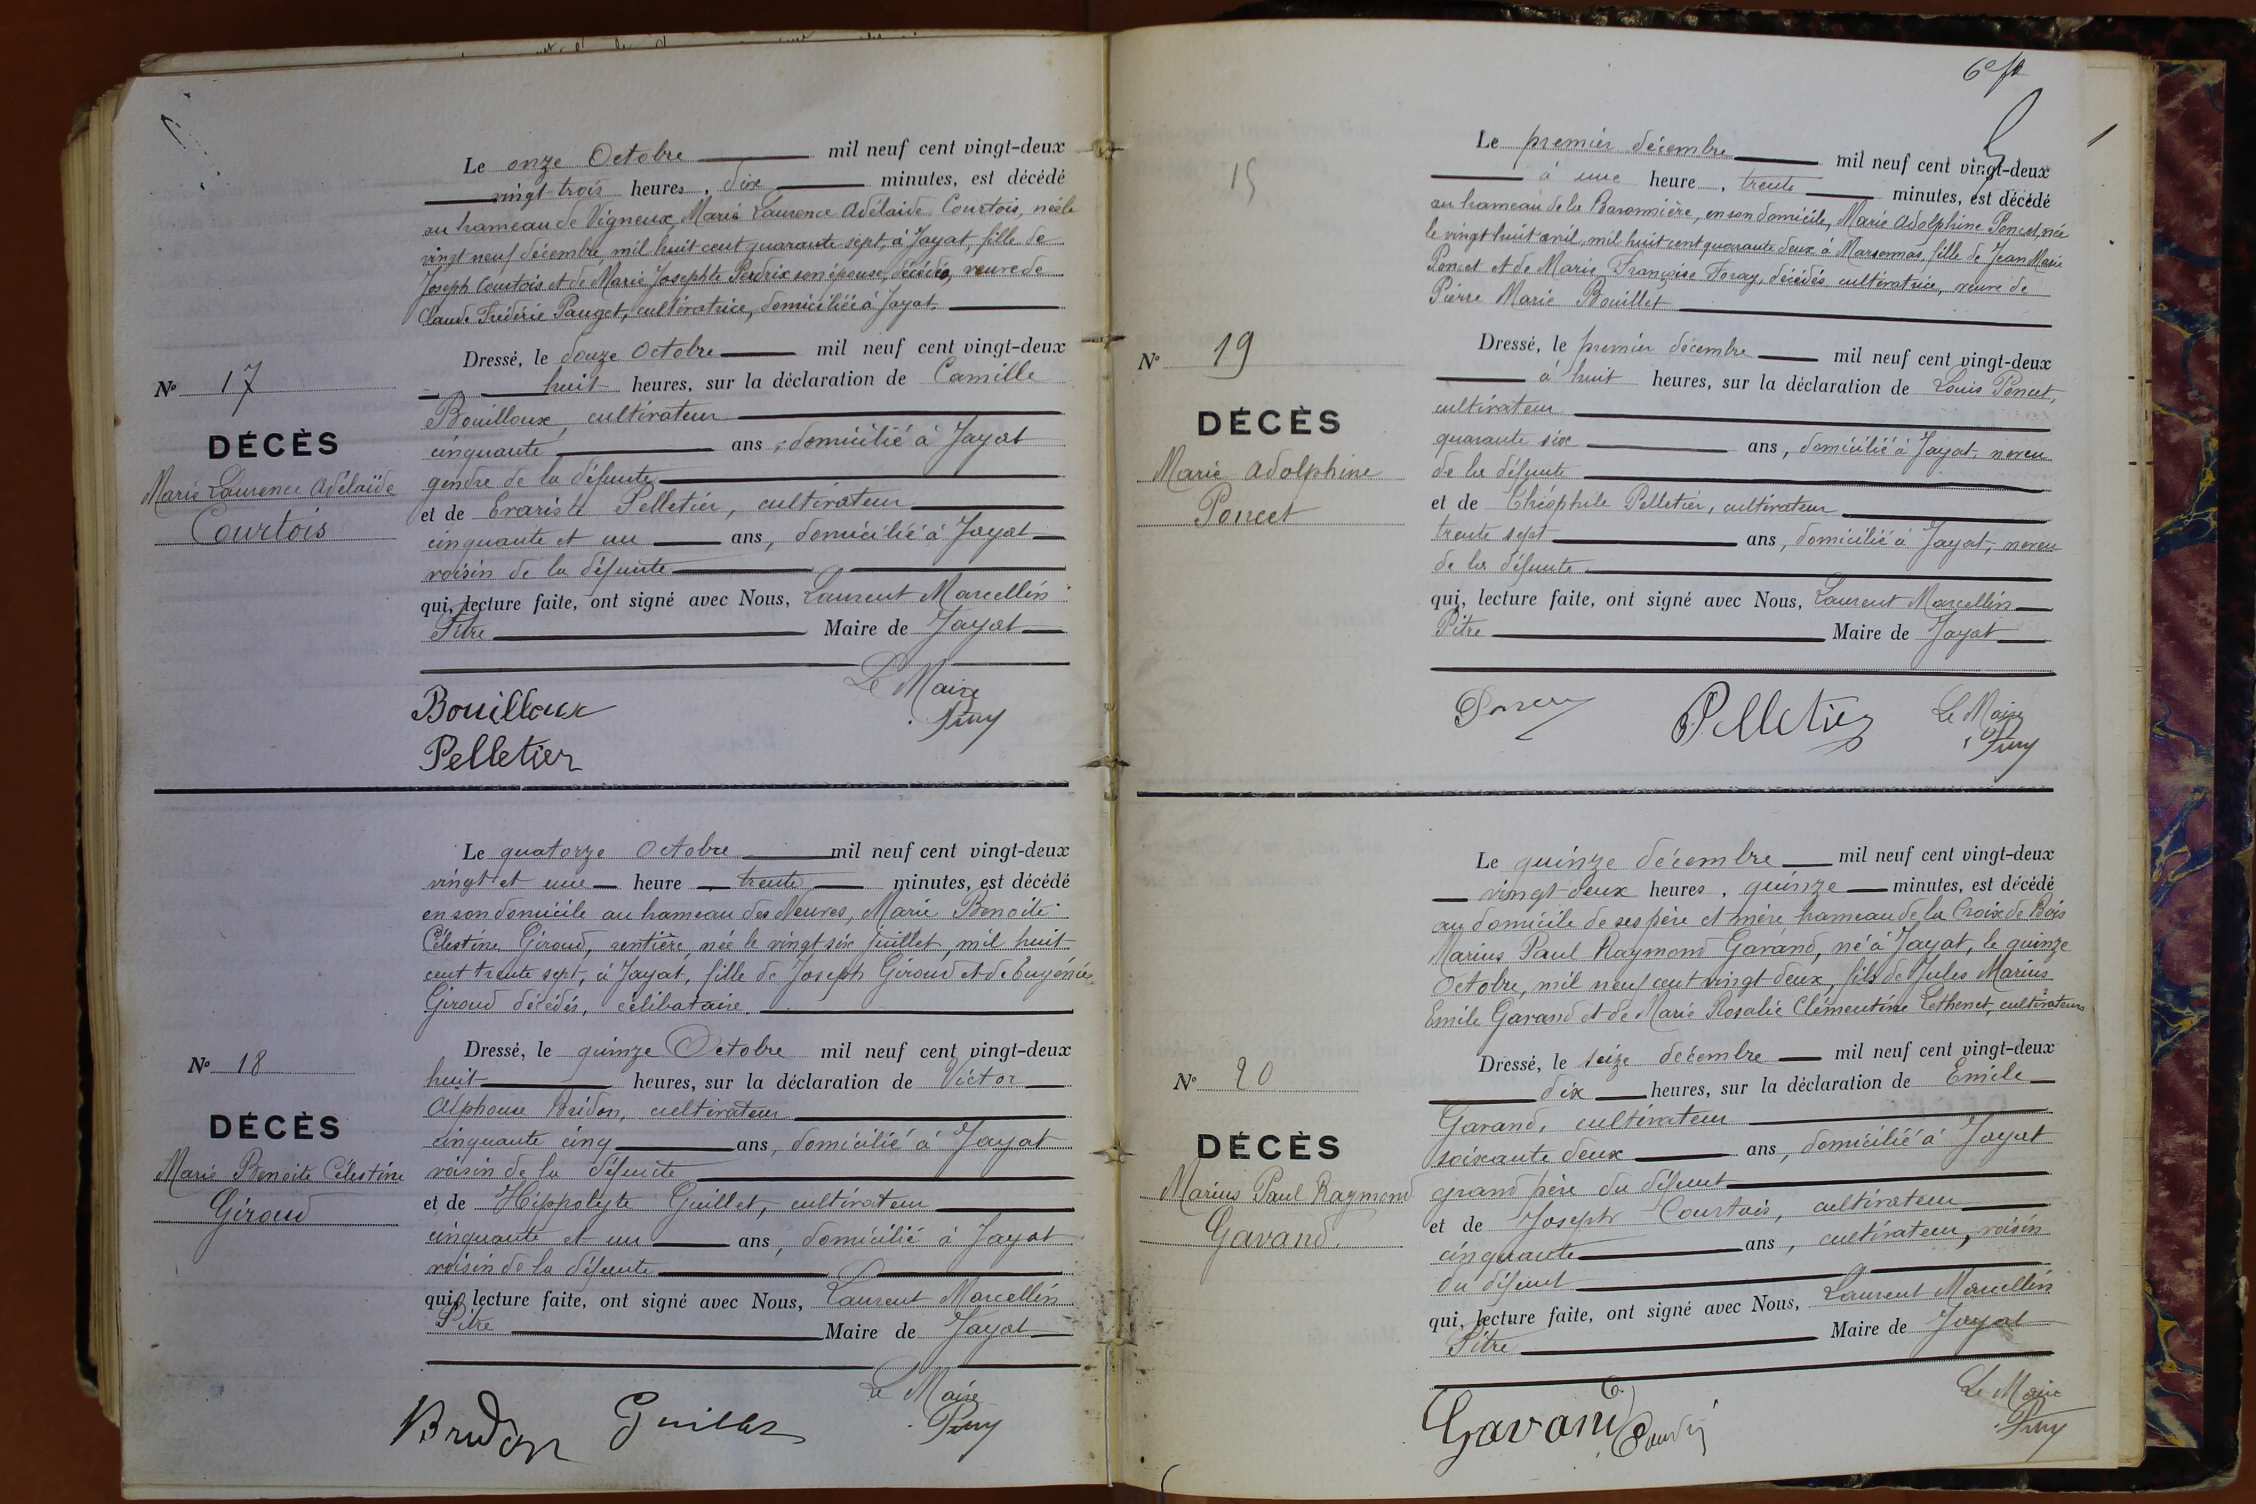 Le onze Octobre mil neuf cent vingt-deux
vingt trois heures, dix minutes, est décédé
au hameau de Vigneux, Marie Laurence Adélaïde Courtois, née le
vingt neuf décembre, mil huit cent quarante sept, à Jayat, fille de
Joseph Courtois et de Marie Josephte Perdrix son épouse, décédés, veuve de
Claude Frédéric Pauget, cultivatrice, domiciliée à Jayat.
Dressé, le douze Octobre mil neuf cent vingt-deux
No 17
huit heures, sur la déclaration de Camille
Bouilloux, cultivateur
DÉCÈS
cinquante ans, domicilié à Jayat
Marie Laurence Adélaïde
gendre de la défunte
Courtois
et de Evariste Pelletier, cultivateur
cinquante et un ans, domicilié à Jayat
voisin de la défunte
qui, lecture faite, ont signé avec Nous, Laurent Marcellin
Pitre Maire de Jayat
Le Maire
Bouilloux
Pelletier
Le quatorze Octobre mil neuf cent vingt-deux
vingt et une heure trente minutes, est décédé
en son domicile au hameau des Neuves, Marie Benoite
Célestine Giroud, rentière, née le vingt six juillet, mil huit
cent trente sept, à Jayat, fille de Joseph Giroud et de Eugénie
Giroud décédés, célibataire.
Dressé, le quinze Octobre mil neuf cent vingt-deux
No 18
huit heures, sur la déclaration de Victor
Alphonse Bridon, cultivateur
DÉCÈS
cinquante cinq ans, domicilié à Jayat
Marie Benoite Célestine
voisin de la défunte
Giroud
et de Hippolyte Guillet, cultivateur
cinquante et un ans, domicilié à Jayat
voisin de la défunte
qui, lecture faite, ont signé avec Nous, Laurent Marcellin
Pitre Maire de Jayat
Le Maire
Bridon Guillet
15
Le premier décembre mil neuf cent vingt-deux
à une heure, trente minutes, est décédé
au hameau de la Baronnière, en son domicile, Marie Adolphine Poncet, née
le vingt huit avril, mil huit cent quarante deux à Marsonnas, fille de Jean Marie
Poncet et de Marie Françoise Foray, décédés cultivatrice, veuve de
Pierre Marie Bouillet
Dressé, le premier décembre mil neuf cent vingt-deux
No 19
à huit heures, sur la déclaration de Louis Poncet,
cultivateur
DÉCÈS
quarante six ans, domicilié à Jayat, neveu
Marie Adolphine
de la défunte
Poncet
et de Théophile Pelletier, cultivateur
trente sept ans, domicilié à Jayat, neveu
de la défunte
qui, lecture faite, ont signé avec Nous, Laurent Marcellin
Pitre Maire de Jayat
Poncet Pelletier Le Maire
Le quinze décembre mil neuf cent vingt-deux
vingt deux heures, quinze minutes, est décédé
au domicile de ses père et mère hameau de la Croix de Bois
Marius Paul Raymond Gavand, né à Jayat, le quinze
Octobre, mil neuf cent vingt deux, fils de Jules Marius
Emile Gavand et de Marie Rosalie Clémentine Lethenet, cultivateurs
Dressé, le seize décembre mil neuf cent vingt-deux
No 20
dix heures, sur la déclaration de Emile
Gavand, cultivateur
DÉCÈS
soixante deux ans, domicilié à Jayat
Marius Paul Raymond
grand père du défunt
Gavand.
et de Joseph Courtois, cultivateur
cinquante ans, cultivateur, voisin
du défunt
qui, lecture faite, ont signé avec Nous, Laurent Marcellin
Pitre Maire de Jayat
Le Maire
Gavand